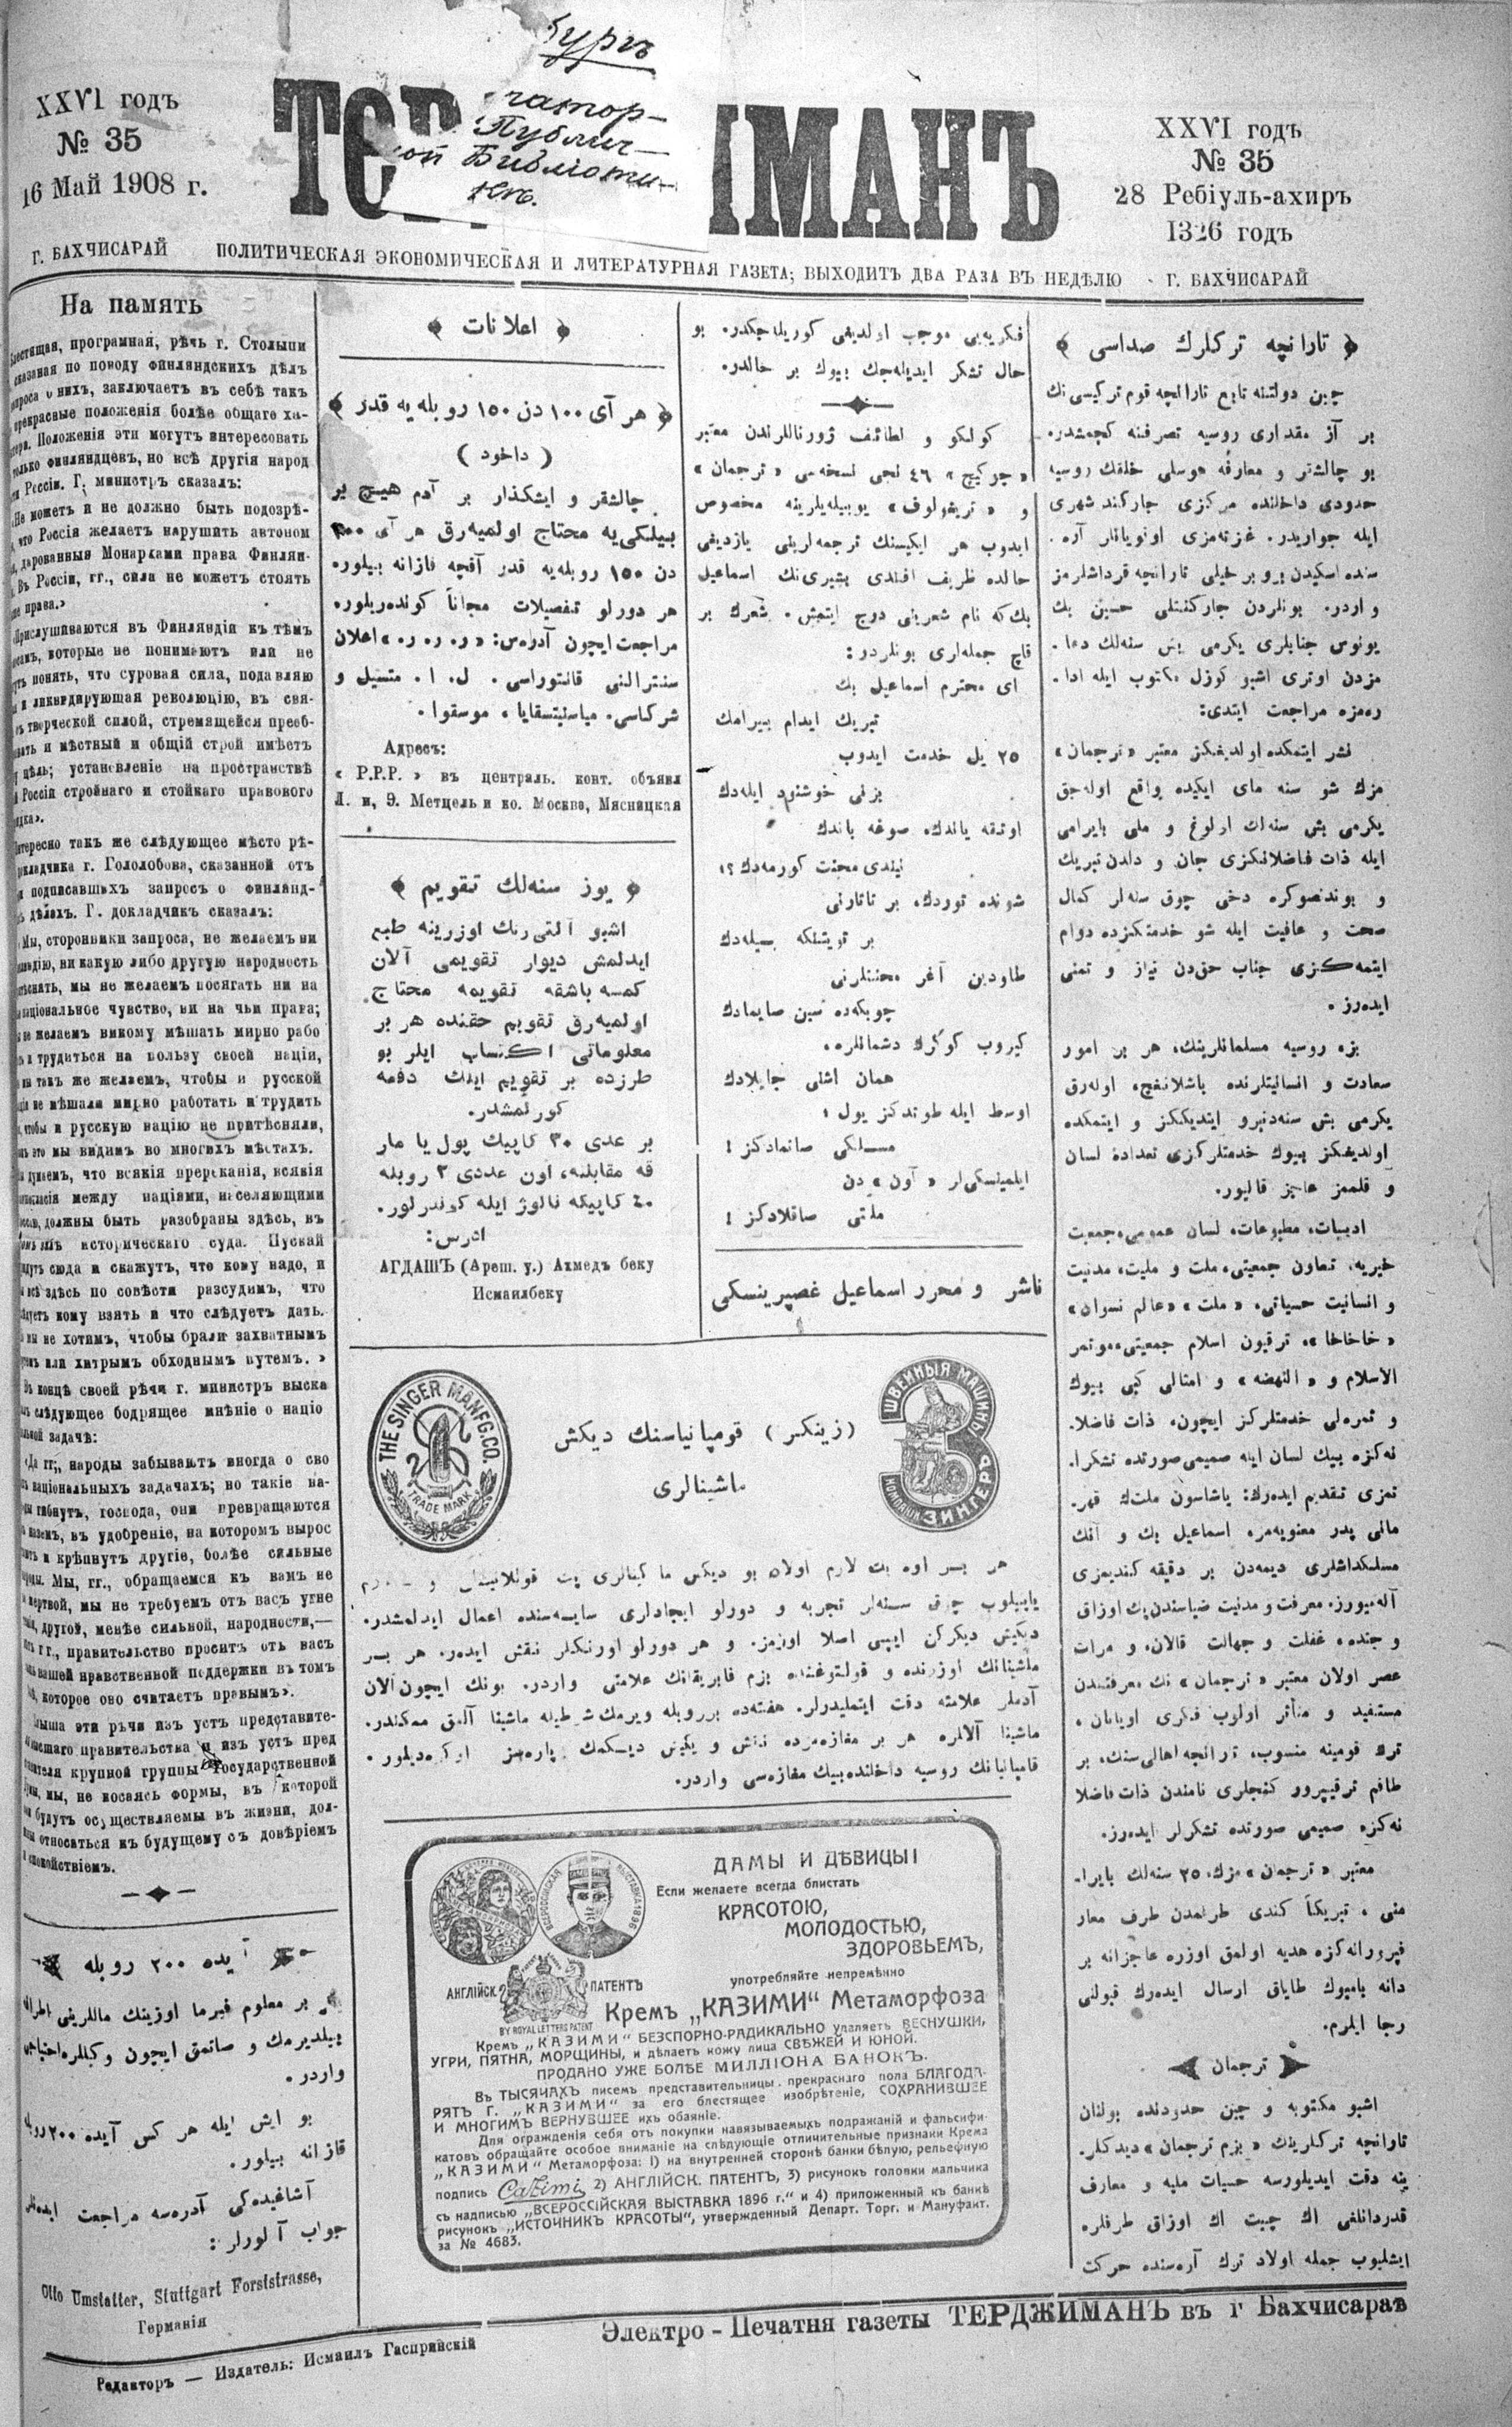 XXVI годъ
№ 35
16 Май 1908 г.
бургъ
Публич-
ной Библiоте-
ТЕР
IМАНЪ
XXVI годъ
№ 35
28 Ребiуль-ахиръ
1326 годъ
Г. БАХЧИСАРАЙ ПОЛИТИЧЕСКАЯ ЭКОНОМИЧЕСКАЯ И ЛИТЕРАТУРНАЯ ГАЗЕТА; ВЫХОДИТЪ ДВА РАЗА ВЪ НЕДѢЛЮ - Г. БАХЧИСАРАЙ
На память
програмная, рѣчь г. Столыпи
по поводу финляндскихъ дѣлъ
нихъ, заключаетъ въ себѣ такъ
прекрасныe положенiя болѣе общаго ха-
Положенiя эти могутъ интересовать
только финляндцевъ, но всѣ другiя народ
Россiи. Г. министръ сказалъ:
можетъ и не должно быть подозрѣ-
что Россiя желаетъ нарушить автоном
дарованныя Монархами права Финлян-
Въ Россiи, гг., сила не можетъ стоять
права.»
Прислушиваются въ Финляндiи къ тѣмъ
которые не понимаютъ или не
понять, что суровая сила, подавляю
и ликвидирующая революцiю, въ свя-
творческой силой, стремящейся преоб-
и мѣстный и общiй строй имѣетъ
цѣль; установленiе на пространствѣ
Россiи стройнаго и стойкаго правового
Интересно такъ же слѣдующее мѣсто рѣ-
докладчика г. Гололобова, сказанной отъ
подписавшихъ запросъ о финлянд-
дѣлахъ. Г. докладчикъ сказалъ:
Мы, сторонники запроса, не желаемъ ни
ни какую либо другую народность
мы не желаемъ посягать ни на
нацiональное чувство, ни на чьи права;
не желаемъ никому мѣшать мирно рабо
и трудиться на пользу своей нацiи,
такъ же желаемъ, чтобы и русской
не мѣшали мирно работать и трудить
чтобы и русскую нацiю не притѣсняли,
это мы видимъ во многихъ мѣстахъ.
думаемъ, что всякiя пререканiя, всякiя
между нацiями, населяющими
должны быть разобраны здѣсь, въ
историческаго суда. Пускай
сюда и скажутъ, что кому надо, и
здѣсь по совѣсти разсудимъ, что
кому взять и что слѣдуетъ дать.
мы не хотимъ, чтобы брали захватнымъ
или хитрымъ обходнымъ путемъ. »
Въ концѣ своей рѣчи г. министръ выска
слѣдующее бодрящее мнѣнiе о нацiо
задачѣ:
«Да гг., народы забываютъ иногда о сво
нацiональныхъ задачахъ; но такiе на-
гибнутъ, господа, они превращаются
въ удобренiе, на которомъ вырос
и крѣпнутъ другiе, болѣе сильные
Мы, гг., обращаемся къ вамъ не
жертвой, мы не требуемъ отъ васъ угне
другой, менѣе сильной, народности,—
гг., правительство проситъ отъ васъ
вашей нравственной поддержки въ томъ
которое оно считаетъ правымъ».
эти рѣчи изъ устъ представите-
правительства и изъ устъ пред
крупной группы Государственной
мы, не косаясь формы, въ которой
будутъ осуществляемы въ жизни, дол-
относиться къ будущему съ довѣрiемъ
спокойствiемъ.
آیده ٢٠٠ روبله
بر معلوم فیرما اوزینك ماللرینی اطراف
بیلدیرمك و صاتمق ایچون وکیللره احتیاجی
واردر.
بو ایش ایله هر کس آیده ٢٠٠ روبله
قازانه بیلور.
آشاغیده‌کی آدرسه مراجعت ایده‌نلر
جواب آلورلر:
Otto Umstatter, Stuttgart Forststrasse,
Германiя
﴿ اعلانات ﴾
﴿ هر آی ١٠٠ دن ١٥٠ روبله یه قدر ﴾
( داخود )
چالشقر و ایشکذار بر آدم هیچ بر
بیلکی‌یه محتاج اولمیه‌رق هر آی ١٠٠
دن ١٥٠ روبله‌یه قدر آقچه قازانه بیلور.
هر دورلو تفصیلات مجاناً کوندریلور.
مراجعت ایچون آدرس: «ر. ر. ر.» اعلان
سنترالنی قانتوراسی. ل. ا. متسیل و
شرکاسی. میاسنیتسقایا، موسقوا.
Адресъ:
« Р.Р.Р. » въ централь. конт. объявл
Л. и, Э. Метцель и ко. Москва, Мясницкая
﴿ یوز سنه‌لك تقویم ﴾
اشبو آلتی رنك اوزرینه طبع
ایدلمش دیوار تقویمی آلان
کمسه باشقه تقویمه محتاج
اولمیه‌رق تقویم حقنده هر بر
معلوماتی اکتساب ایلر بو
طرزده بر تقویم ایلك دفعه
کورلمشدر.
بر عددی ٣٠ کاپیك پول یا مار
قه مقابلنه، اون عددی ٢ روبله
٤٠ کاپیکه نالوژ ایله کوندرلور.
ادرس:
АГДАШЪ (Ареш. у.) Ахмедъ беку
Исмаилбеку
فکریه‌یی موجب اولدیغی کوریله‌جکدر. بو
حال تشکر ایدیله‌جك بیوك بر حالدر.
کولکو و لطائف ژورناللرندن معتبر
«چرکیچ» ٤٦ نجی نسخه‌سی «ترجمان»
و «تریغولوف» یوبیله‌یلرینه مخصوص
ایدوب هر ایکیسنك ترجمه‌لرینی یازدیغی
حالده ظریف افندی بشیری‌نك اسماعیل
بك‌که نام شعرینی درج ایتمش. شعرك بر
قاچ جمله‌لری بونلردر:
ای محترم اسماعیل بك
تبریك ایدام بیرامك
٢٥ یل خدمت ایدوب
بزنی خوشنود ایله‌دك
اوتقه یاندك، صوغه باندك
نیلدی محنت کورمه‌دك؟!
شونده توردك، بر تاتارنی
بر تویشلکه بسیله‌دك
طاودین آغر محنتلرنی
چوبکه‌ده سین صایمادك
کیروب کوکرك دشمانلره،
همان اشنی جایلادك
اوسط ایله طوتدکز یول!
مسلکی صاتمادکز!
ایلمینسکی‌لر «آون» دن
ملتی صاقلادکز!
ناشر و محرر اسماعیل غصپرینسکی
﴿ تارانچه ترکلرك صداسی ﴾
چین دولتنه تابع تارانچه قوم ترکیسی‌نك
بر آز مقداری روسیه تصرفنه کچمشدر.
بو چالشقر و معارفه هوسلی خلقك روسیه
حدودی داخلنده مرکزی جارکند شهری
ایله جواریدر. غزته‌مزی اوقویانلر آره.
سنده اسکیدن برو بر خیلی تارانچه قرداشلرمز
واردر. بونلردن جارکنتلی حسین بك
یونوس جنابلری یکرمی بش سنه‌لك دعا.
مزدن اوتری اشبو کوزل مکتوب ایله ادا.
ره‌مزه مراجعت ایتدی:
نشر ایتمکده اولدیغکز معتبر «ترجمان»
مزك شو سنه مای ایکیده واقع اوله‌جق
یکرمی بش سنه‌لك ارلوغ و ملی بایرامی
ایله ذات فاضلانکزی جان و دلدن تبریك
و بوندنصوکره دخی چوق سنه‌لر کمال
صحت و عافیت ایله شو خدمتکزده دوام
ایتمه‌کزی جناب حق‌دن نیاز و تمنی
ایده‌رز.
بزه روسیه مسلمانلرینك، هر بر امور
سعادت و انسانیتلرنده باشلانغچ، اوله‌رق
یکرمی بش سنه‌دنبرو ایتدیککز و ایتمکده
اولدیغکز بیوك خدمتلرکزی تعداده لسان
و قلممز عاجز قالیور.
ادبیات، مطبوعات، لسان عمومی، جمعیت
خیریه، تعاون جمعیتی، ملت و ملیت، مدنیت
و انسانیت حسیاتی، «ملت» «عالم نسوان»
«خاخاخا»، ترقیون اسلام جمعیتی، مؤتمر
الاسلام و «النهضه» و امثالی کبی بیوك
و ثمره‌لی خدمتلرکز ایچون، ذات فاضلا.
نه‌کزه بیك لسان ایله صمیمی صورتده تشکرا.
تمزی تقدیم ایده‌رك: یاشاسون ملتك قهر.
مانی پدر معنویه‌مز، اسماعیل بك و آنك
مسلکداشلری دیمه‌دن بر دقیقه کندیمزی
آله‌میورز. معرفت و مدنیت ضیاسندن پك اوزاق
و جنده، غفلت و جهالت قالان، و مرات
عصر اولان معتبر «ترجمان» نك معرفتندن
مستفید و متأثر اولوب فکری اویانان،
ترك قومینه منسوب، تارانچه اهالی‌سنك، بر
طاقم ترقیپرور کنجلری نامندن ذات فاضلا
نه‌کزه صمیمی صورتده تشکرلر ایده‌رز.
معتبر «ترجمان» مزك، ٢٥ سنه‌لك بایرا.
منی، تبریکاً کندی طرفمدن طرف معار
فپرورانه‌کزه هدیه اولمق اوزره عاجزانه بر
دانه بامبوك طایاق ارسال ایده‌رك قبولنی
رجا ایلرم.
ترجمان
اشبو مکتوبه و چین حدودنده بولنان
تارانچه ترکلرینك «بزم ترجمان» دیدکلر.
ینه دقت ایدیلورسه حسیات ملیه و معارف
قدردانلغی اك چیت اك اوزاق طرفلره
ایشلیوب جمله اولاد ترك آره‌سنده حرکت
THE SINGER MANFG. CO.
TRADE MARK
(زینکر) قومپانیاسنك دیکش
ماشینالری
ШВЕЙНЫЯ МАШИНЫ
КОМПАНIИ ЗИНГЕРЪ
یاپیلوب چوق سنه‌لر تجربه و دورلو ایجادلری سایه‌سنده اعمال ایدلمشدر.
دیکیش دیکرکن ایپی اصلا اوزمز. و هر دورلو اورنکلر نقش ایدر. هر بر
ماشینانك اوزرنده و قولتوغنده بزم فابریقانك علامتی واردر. بونك ایچون آلان
آدملر علامته دقت ایتملیدرلر. هفته‌ده بر روبله ویرمك شرطیله ماشینا آلمق ممکندر.
ماشینا آلانلره هر بر مغازه‌مزده نقش و یکیش دیکمك پاره‌سز اوکره‌دیلور.
قامپانیانك روسیه داخلنده بیك مغازه‌سی واردر.
ДАМЫ И ДѢВИЦЫ!
Если желаете всегда блистать
КРАСОТОЮ,
МОЛОДОСТЬЮ,
ЗДОРОВЬЕМЪ,
употребляйте непремѣнно
АНГЛIЙСК. ПАТЕНТЪ
BY ROYAL LETTERS PATENT
Кремъ „КАЗИМИ“ Метаморфоза
Кремъ „КАЗИМИ“ БЕЗСПОРНО-РАДИКАЛЬНО удаляетъ ВЕСНУШКИ,
УГРИ, ПЯТНА, МОРЩИНЫ, и дѣлаетъ кожу лица СВѢЖЕЙ И ЮНОЙ.
ПРОДАНО УЖЕ БОЛѢЕ МИЛЛIОНА БАНОКЪ.
Въ ТЫСЯЧАХЪ писемъ представительницы прекраснаго пола БЛАГОДА-
РЯТЪ Г. „КАЗИМИ“ за его блестящее изобрѣтенiе, СОХРАНИВШЕЕ
И МНОГИМЪ ВЕРНУВШЕЕ ихъ обаянiе.
Для огражденiя себя отъ покупки навязываемыхъ подражанiй и фальсифи-
катовъ обращайте особое вниманiе на слѣдующiе отличительные признаки Крема
„КАЗИМИ“ Метаморфоза: 1) на внутренней сторонѣ банки бѣлую, рельефную
подпись Casimi 2) АНГЛIЙСК. ПАТЕНТЪ, 3) рисунокъ головки мальчика
съ надписью „ВСЕРОССIЙСКАЯ ВЫСТАВКА 1896 г.“ и 4) приложенный къ банкѣ
рисунокъ „ИСТОЧНИКЪ КРАСОТЫ“, утвержденный Департ. Торг. и Мануфакт.
за № 4683.
Редакторъ — Издатель: Исмаилъ Гаспринскiй
Электро - Печатня газеты ТЕРДЖИМАНЪ въ г Бахчисараѣ